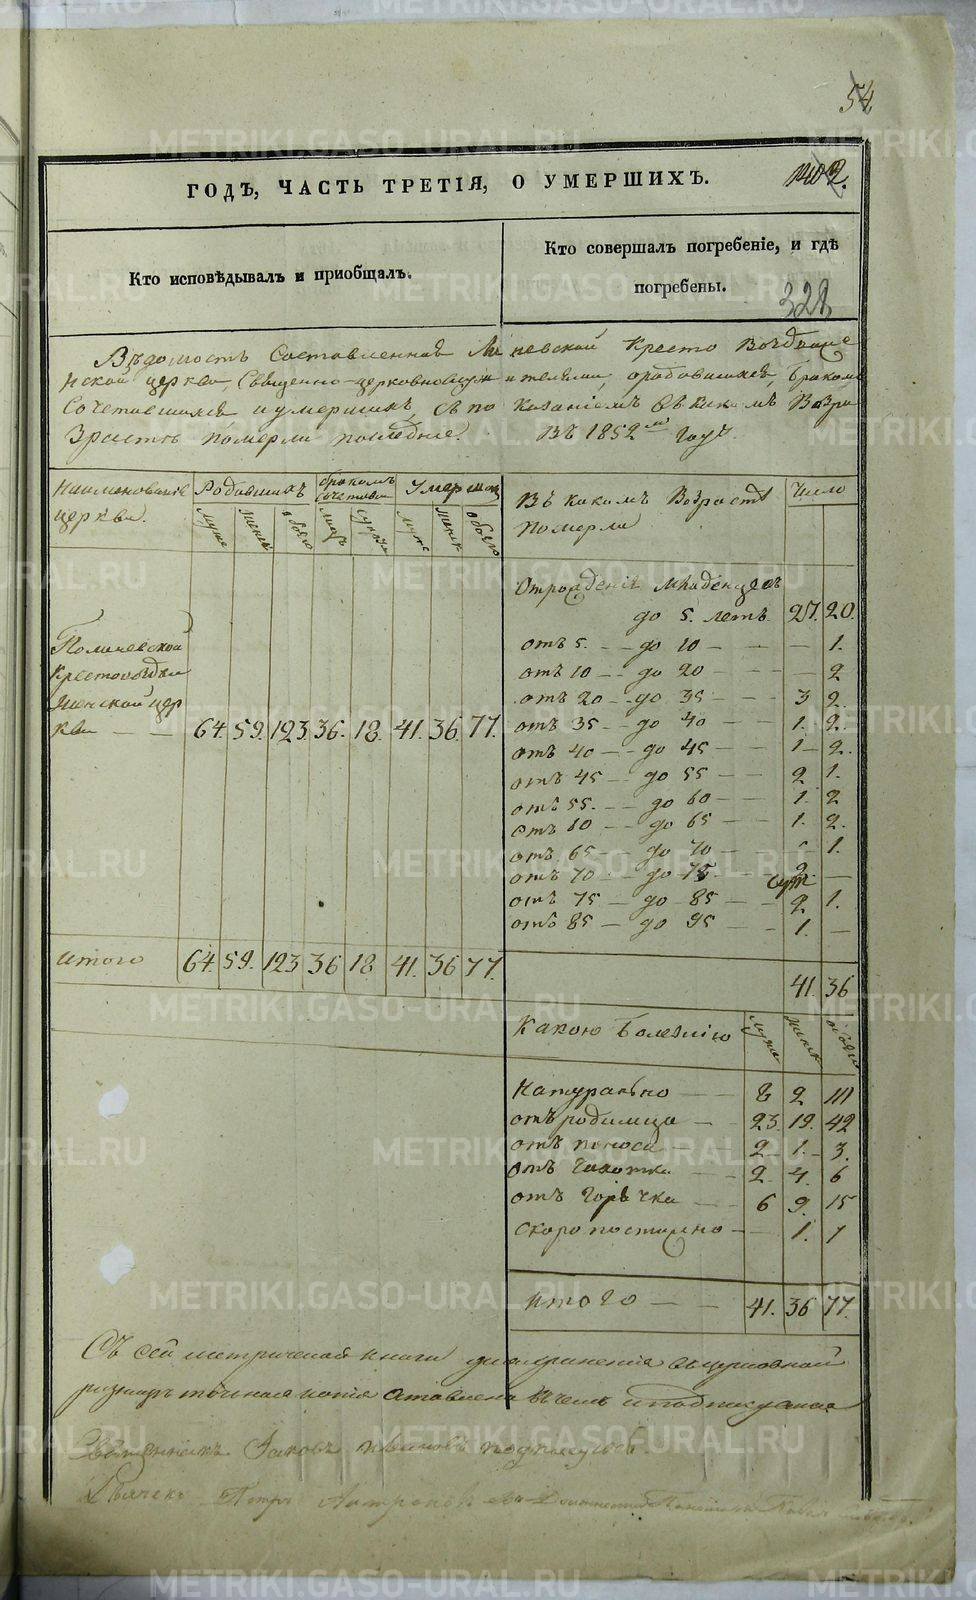 54
ГОДЪ, ЧАСТЬ ТРЕТІЯ, О УМЕРШИХЪ.
Кто исповѣдывалъ и приобщалъ.
Кто совершалъ погребеніе, и гдѣ
погребены.
328
Вѣдомость Составленная Кресто Воздвиже
нской церкви, Священно-церковнослужителями, ородовшихся, Бракомъ
Сочетавшихся и умершихъ, съ показаніемъ въ какомъ Возра
Зрастѣ померли последніе. Въ 1852 м годѣ.
Наименованіе
церкви.
Родившихъ
бракомъ
сочетавш
Умершихъ
Муже Женск обоего Лицъ Супруж Муже Женск обоего
Въ какомъ Возрастѣ
Померли
Число
Отрожденія Младенцевъ
до 5. летъ 27. 20.
отъ 5. — до 10 — — 1.
отъ 10 — до 20 — — 2
отъ 20 — до 35 — 3 2.
отъ 35 — до 40 — 1. 2.
отъ 40 — до 45 — 1 — 2.
отъ 45 — до 55 — 2 1.
отъ 55. — до 60 — 1. 2
отъ 60 — до 65 — 1. 2.
отъ 65 — до 70 — 1.
отъ 70 — до 75 — 2 —
отъ 75 — до 85 — 2 1.
отъ 85 — до 95 — 1. —
41. 36
Крестовоздви
женской цер
кви — 64. 59. 123. 36. 18. 41. 36. 77.
итого 64. 59. 123 36 18 41. 36 77.
Какою Болезнію муже женск обоего
Натурально — 8 2
отъ родимца — 23. 19. 42
отъ поноса 2 — 1. — 3.
отъ чахотки 2. 4. 6
отъ горѣчки 6 9. 15
скоропостижно — 1. 1
итого — — 41. 36 77.
Съ сей метрической книги для храненія въ церковной
ризницѣ точная копія оставлена въ чемъ
Священникъ Іаковъ подписуюсь.
Дьячекъ Петръ
METRIKI.GASO-URAL.RU